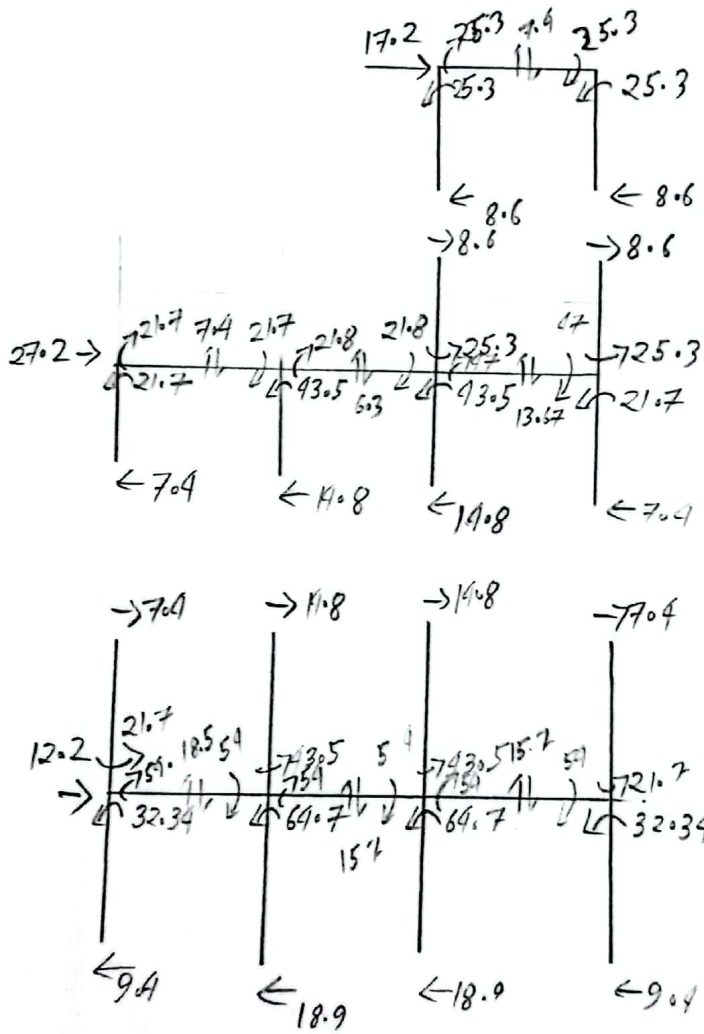 17.2 25.3 7.4 25.3
25.3 25.3
← 8.6 ← 8.6
→8.6 →8.6
27.2 → 21.7 7.4 21.7 21.8 21.8 25.3 47 25.3
21.7 43.5 6.3 43.5 13.67 21.7
←7.4 ←14.8 ←14.8 ←7.4
→7.4 →14.8 →14.8 →7.4
12.2 21.7 18.5 54 43.5 54 43.5 15.7 54 21.7
→ 54 54 54
32.34 64.7 64.7 32.34
←9.4 ←18.9 ←18.9 ←9.4